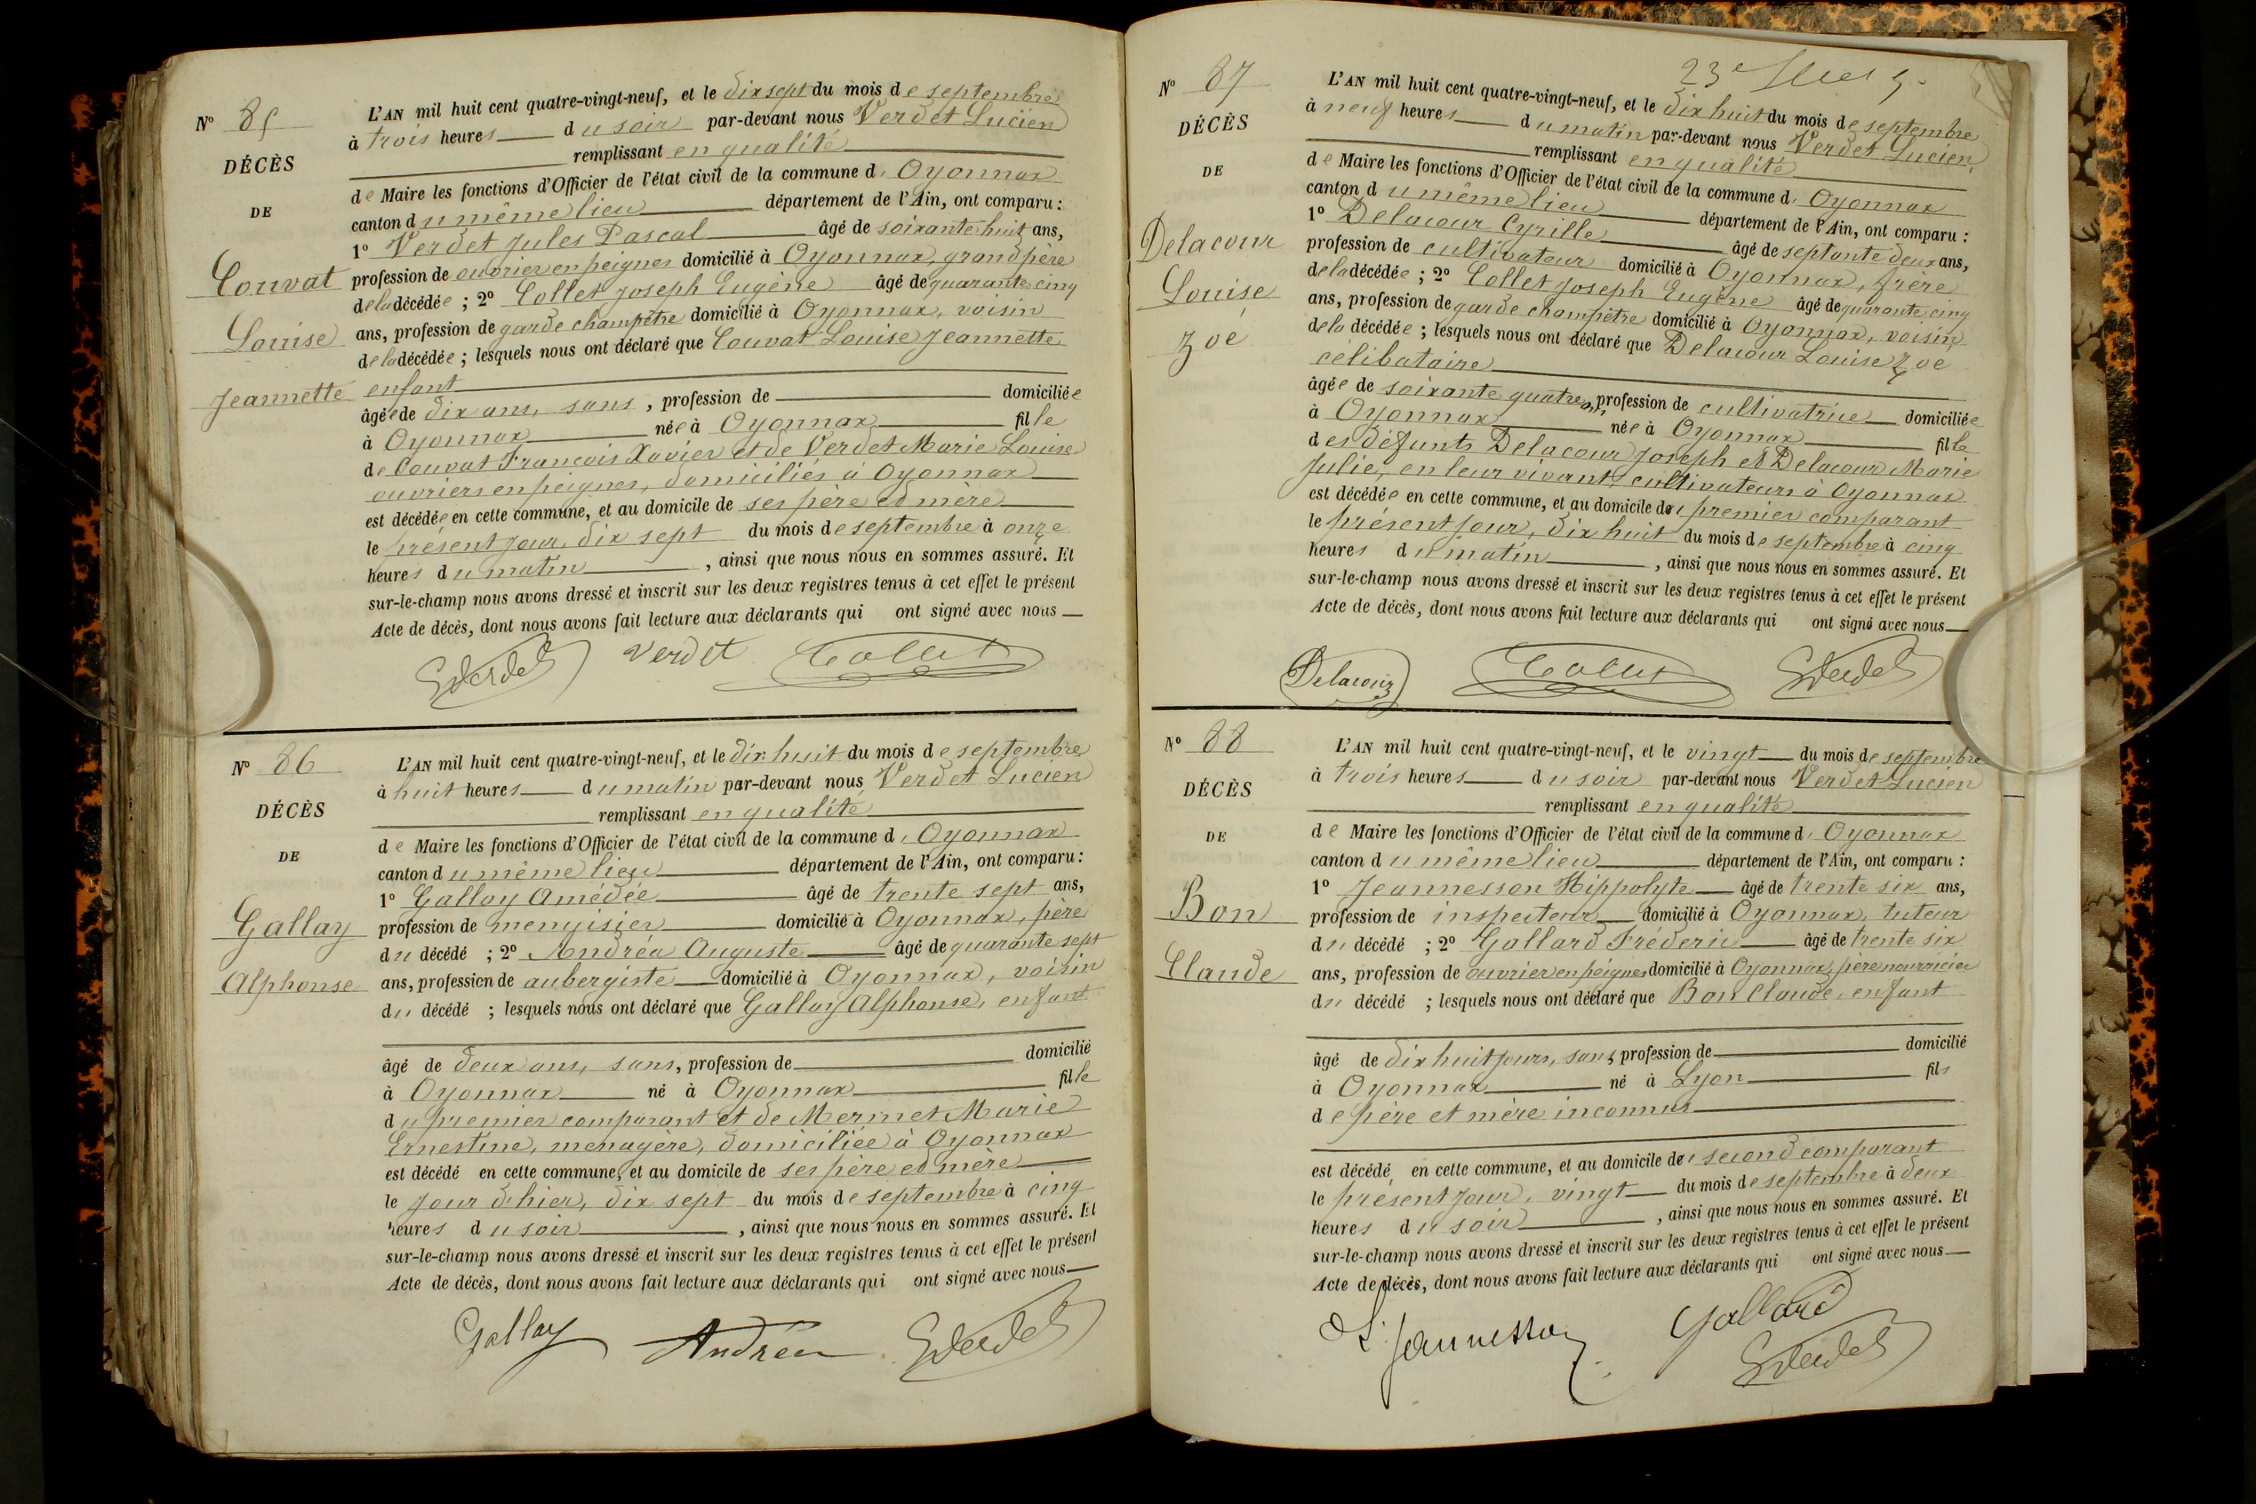 N° 85
DÉCÈS
DE
Couvat
Louise
Jeannette
L'AN mil huit cent quatre-vingt-neuf, et le dix sept du mois de septembre
à trois heures du soir par-devant nous Verdet Lucien
remplissant en qualité
de Maire les fonctions d'Officier de l'état civil de la commune d'Oyonnax
canton du même lieu département de l'Ain, ont comparu :
1° Verdet Jules Pascal âgé de soixante huit ans,
profession de ouvrier en peignes domicilié à Oyonnax, grand père
de la décédée ; 2° Collet Joseph Eugène âgé de quarante cinq
ans, profession de garde champêtre domicilié à Oyonnax, voisin
de la décédée ; lesquels nous ont déclaré que Couvat Louise Jeannette
enfant
âgée de dix ans, sans, profession de domiciliée
à Oyonnax née à Oyonnax fille
de Couvat François Xavier et de Verdet Marie Louise
ouvriers en peignes, domiciliés à Oyonnax
est décédée en cette commune, et au domicile de ses père et mère
le présent jour, dix sept du mois de septembre à onze
heures du matin , ainsi que nous nous en sommes assuré. Et
sur-le-champ nous avons dressé et inscrit sur les deux registres tenus à cet effet le présent
Acte de décès, dont nous avons fait lecture aux déclarants qui ont signé avec nous
Verdet Verdet Collet
N° 86
DÉCÈS
DE
Gallay
Alphonse
L'AN mil huit cent quatre-vingt-neuf, et le dix huit du mois de septembre
à huit heures du matin par-devant nous Verdet Lucien
remplissant en qualité
de Maire les fonctions d'Officier de l'état civil de la commune d'Oyonnax
canton du même lieu département de l'Ain, ont comparu :
1° Gallay Amédée âgé de trente sept ans,
profession de menuisier domicilié à Oyonnax, père
du décédé ; 2° Andréa Auguste âgé de quarante sept
ans, profession de aubergiste domicilié à Oyonnax, voisin
du décédé ; lesquels nous ont déclaré que Gallay Alphonse, enfant
âgé de deux ans, sans, profession de domicilié
à Oyonnax né à Oyonnax fille
du premier comparant et de Mermet Marie
Ernestine, menagère, domiciliée à Oyonnax
est décédé en cette commune, et au domicile de ses père et mère
le jour d'hier, dix sept du mois de septembre à cinq
heures du soir , ainsi que nous nous en sommes assuré. Et
sur-le-champ nous avons dressé et inscrit sur les deux registres tenus à cet effet le présent
Acte de décès, dont nous avons fait lecture aux déclarants qui ont signé avec nous
Gallay Andréa Verdet
23e
N° 87
DÉCÈS
DE
Delacour
Louise
Zoé
L'AN mil huit cent quatre-vingt-neuf, et le dix huit du mois de septembre
à neuf heures du matin par-devant nous Verdet Lucien
remplissant en qualité
de Maire les fonctions d'Officier de l'état civil de la commune d'Oyonnax
canton du même lieu département de l'Ain, ont comparu :
1° Delacour Cyrille âgé de septante deux ans,
profession de cultivateur domicilié à Oyonnax, frère
de la décédée ; 2° Collet Joseph Eugène âgé de quarante cinq
ans, profession de garde champêtre domicilié à Oyonnax, voisin
de la décédée ; lesquels nous ont déclaré que Delacour Louise Zoé
célibataire
âgée de soixante quatre ans, profession de cultivatrice domiciliée
à Oyonnax née à Oyonnax fille
des défunts Delacour Joseph et Delacour Marie
Julie, en leur vivant cultivateurs à Oyonnax
est décédée en cette commune, et au domicile du premier comparant
le présent jour, dix huit du mois de septembre à cinq
heures du matin , ainsi que nous nous en sommes assuré. Et
sur-le-champ nous avons dressé et inscrit sur les deux registres tenus à cet effet le présent
Acte de décès, dont nous avons fait lecture aux déclarants qui ont signé avec nous
Delacour Collet Verdet
N° 88
DÉCÈS
DE
Bon
Claude
L'AN mil huit cent quatre-vingt-neuf, et le vingt du mois de septembre
à trois heures du soir par-devant nous Verdet Lucien
remplissant en qualité
de Maire les fonctions d'Officier de l'état civil de la commune d'Oyonnax
canton du même lieu département de l'Ain, ont comparu :
1° Jeannesson Hippolyte âgé de trente six ans,
profession de inspecteur domicilié à Oyonnax, tuteur
du décédé ; 2° Gallard Fréderic âgé de trente six
ans, profession de ouvrier en peignes domicilié à Oyonnax, père nourricier
du décédé ; lesquels nous ont déclaré que Bon Claude, enfant
âgé de dix huit jours, sans, profession de domicilié
à Oyonnax né à Lyon fils
de père et mère inconnus
est décédé en cette commune, et au domicile du second comparant
le présent jour, vingt du mois de septembre à deux
heures du soir , ainsi que nous nous en sommes assuré. Et
sur-le-champ nous avons dressé et inscrit sur les deux registres tenus à cet effet le présent
Acte de décès, dont nous avons fait lecture aux déclarants qui ont signé avec nous
H. Jeannesson Gallard
Verdet